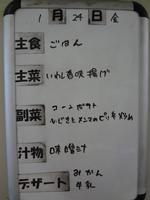 1月24日 金
主食 ごはん
主菜 いわし香味揚げ
副菜 コーンポテト
ひじきとメンマのピリ辛炒め
汁物 味噌汁
デザート みかん
牛乳